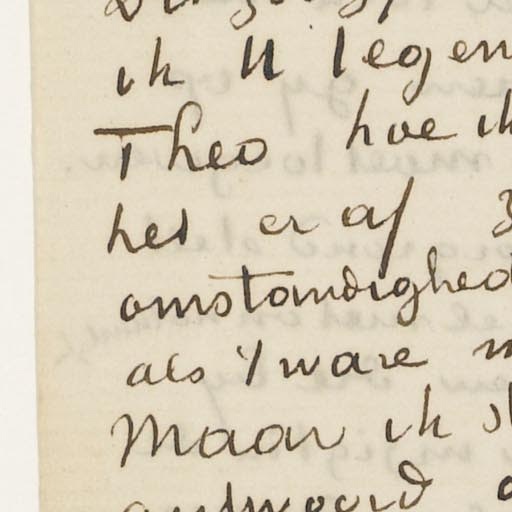 ik U tegen
Theo hoe ik
het er af
omstandighed
als 't ware
Maar ik
antwoord